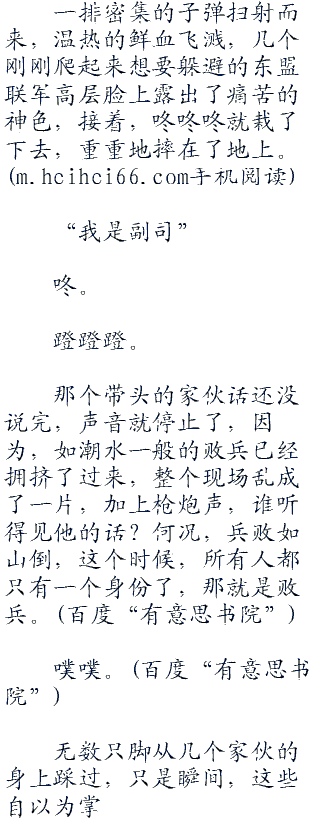 一排密集的子弹扫射而
来，温热的鲜血飞溅，几个
刚刚爬起来想要躲避的东盟
联军高层脸上露出了痛苦的
神色，接着，咚咚咚就栽了
下去，重重地摔在了地上。
(m.hcihci66.com手机阅读)
“我是副司”
咚。
蹬蹬蹬。
那个带头的家伙话还没
说完，声音就停止了，因
为，如潮水一般的败兵已经
拥挤了过来，整个现场乱成
了一片，加上枪炮声，谁听
得见他的话？何况，兵败如
山倒，这个时候，所有人都
只有一个身份了，那就是败
兵。(百度“有意思书院”)
噗噗。(百度“有意思书
院”)
无数只脚从几个家伙的
身上踩过，只是瞬间，这些
自以为掌